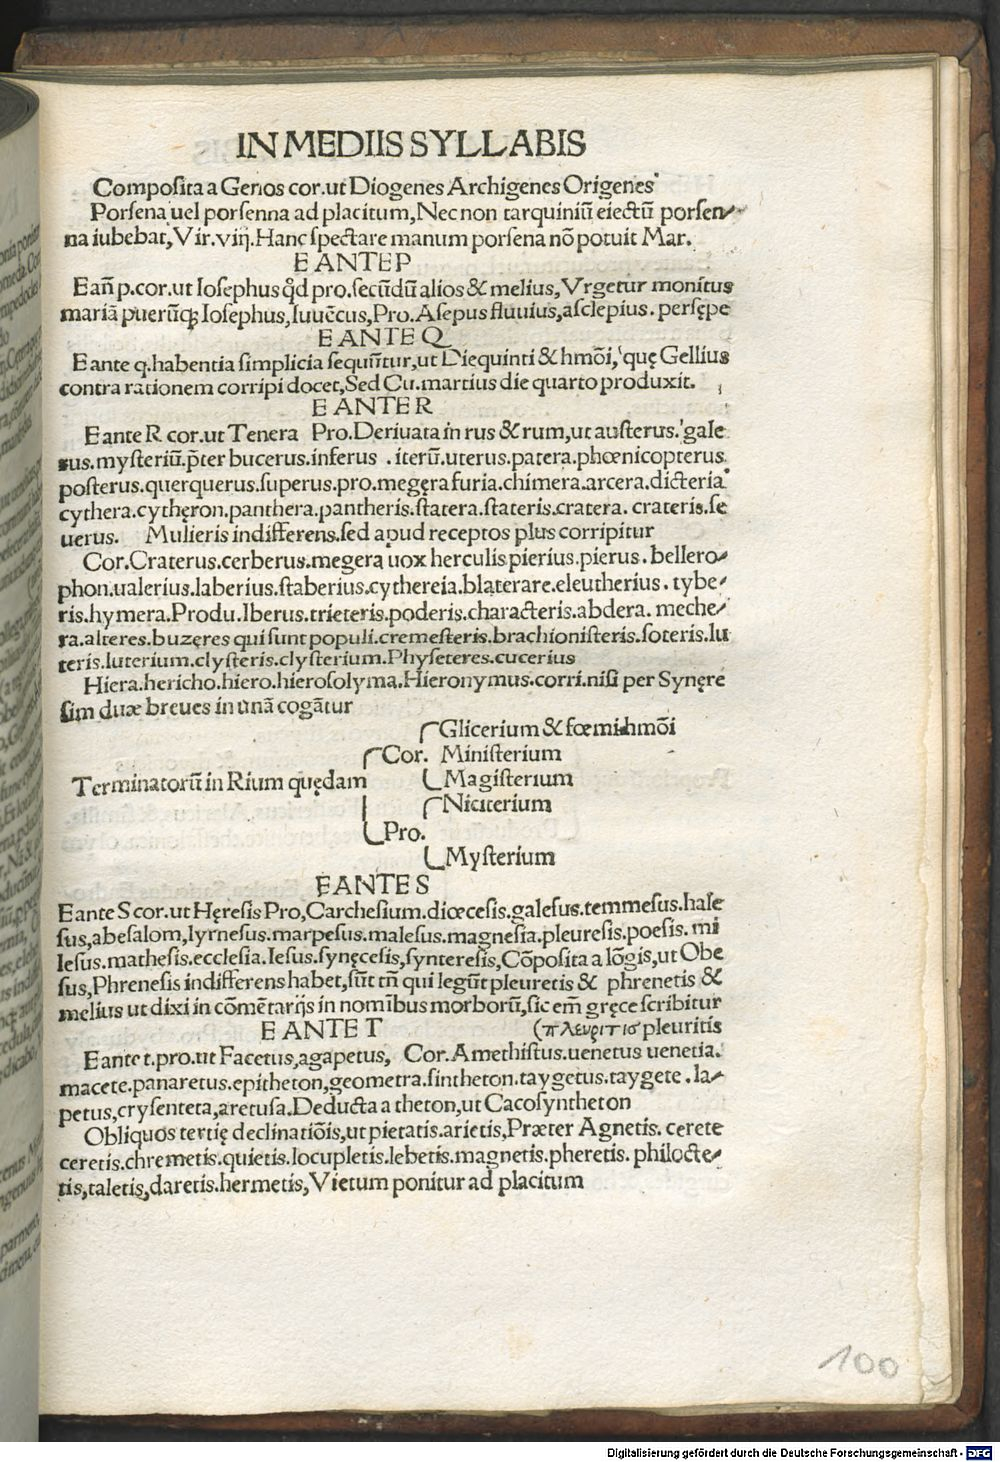 IN MEDIIS SYLLABIS
Composita a Genos cor.ut Diogenes Archigenes Origenes
Porsena uel porsenna ad placitum,Nec non tarquiniū eiectū porsen/
na iubebat,Vir.viij.Hanc spectare manum porsena nō potuit Mar.
E ANTE P
Eañ p.cor.ut Iosephus qd pro.secūdū alios & melius,Vrgetur monitus
mariā puerūq; Iosephus,Iuuēcus,Pro.Asepus fluuius,asclepius.persępe
E ANTE Q
E ante q.habentia simplicia sequūtur,ut Diequinti & hmōi,quę Gellius
contra rationem corripi docet,Sed Cu.martius die quarto produxit.
E ANTE R
E ante R cor.ut Tenera Pro.Deriuata in rus & rum,ut austerus.gale
sus.mysteriū.p̄ter bucerus.inferus .iterū.uterus.patera.phœnicopterus
posterus.querquerus.superus.pro.megęra furia.chimera.arcera.dicteria
cythera.cythęron.panthera.pantheris.statera.stateris.cratera. crateris.se
uerus. Mulieris indifferens.sed apud receptos plus corripitur
Cor.Craterus.cerberus.megera uox herculis pierius.pierus.bellero/
phon.ualerius.laberius.staberius.cythereia.blaterare.eleutherius.tybe/
ris.hymera.Produ.Iberus.trieteris.poderis.characteris.abdera. meche/
ra.alteres.buzęres qui sunt populi.cremesteris.brachionisteris.soteris.lu
teris.luterium.clysteris.clysterium.Physeteres.cucerius
Hiera.hericho.hiero.hierosolyma.Hieronymus.corri.nisi per Synęre
sim duæ breues in unā cogātur
Glicerium & fœmi.hmōi
Cor. Ministerium
Terminatorū in Rium quędam Magisterium
Niciterium
Pro.
Mysterium
E ANTE S
E ante S cor.ut Hęresis Pro,Carchesium.diœcesis.galesus.temmesus.hale
sus,abesalom,lyrnesus.marpesus.malesus.magnesia.pleuresis.poesis. mi
lesus.mathesis.ecclesia.Iesus.synęcesis,synteresis,Cōposita a lōgis,ut Obe
sus,Phrenesis indifferens habet,sūt tñ qui legūt pleuretis & phrenetis &
melius ut dixi in cōmētarijs in nomībus morborū,sic em̄ gręce scribitur
E ANTE T (πλευριτισ pleuritis
E ante t.pro.ut Facetus,agapetus, Cor.Amethistus.uenetus uenetia.
macete.panaretus.epitheton,geometra.sintheton.taygetus.taygete.la/
petus,crysenteta,aretusa.Deducta a theton,ut Cacosyntheton
Obliquos tertię declinatiōis,ut pietatis.arietis,Præter Agnetis. cerete
ceretis.chremetis.quietis.locupletis.lebetis.magnetis.pheretis.philocte/
tis,taletis,daretis.hermetis,Vietum ponitur ad placitum
100
Digitalisierung gefördert durch die Deutsche Forschungsgemeinschaft - DFG